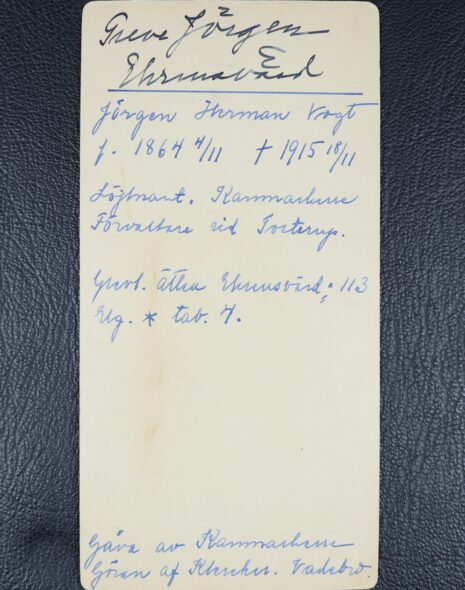 Greve Jörgen
Ehrensvärd
Jörgen Herman Vogt
f. 1864 4/11 † 1915 18/11
Löjtnant. Kammarherre
Förvaltare vid Tosterup.
Grevl. ätten Ehrensvärd, 113
Elg. * tab. 4.
Gåva av Kammarherre
Göran af Klercker. Vadsbro.